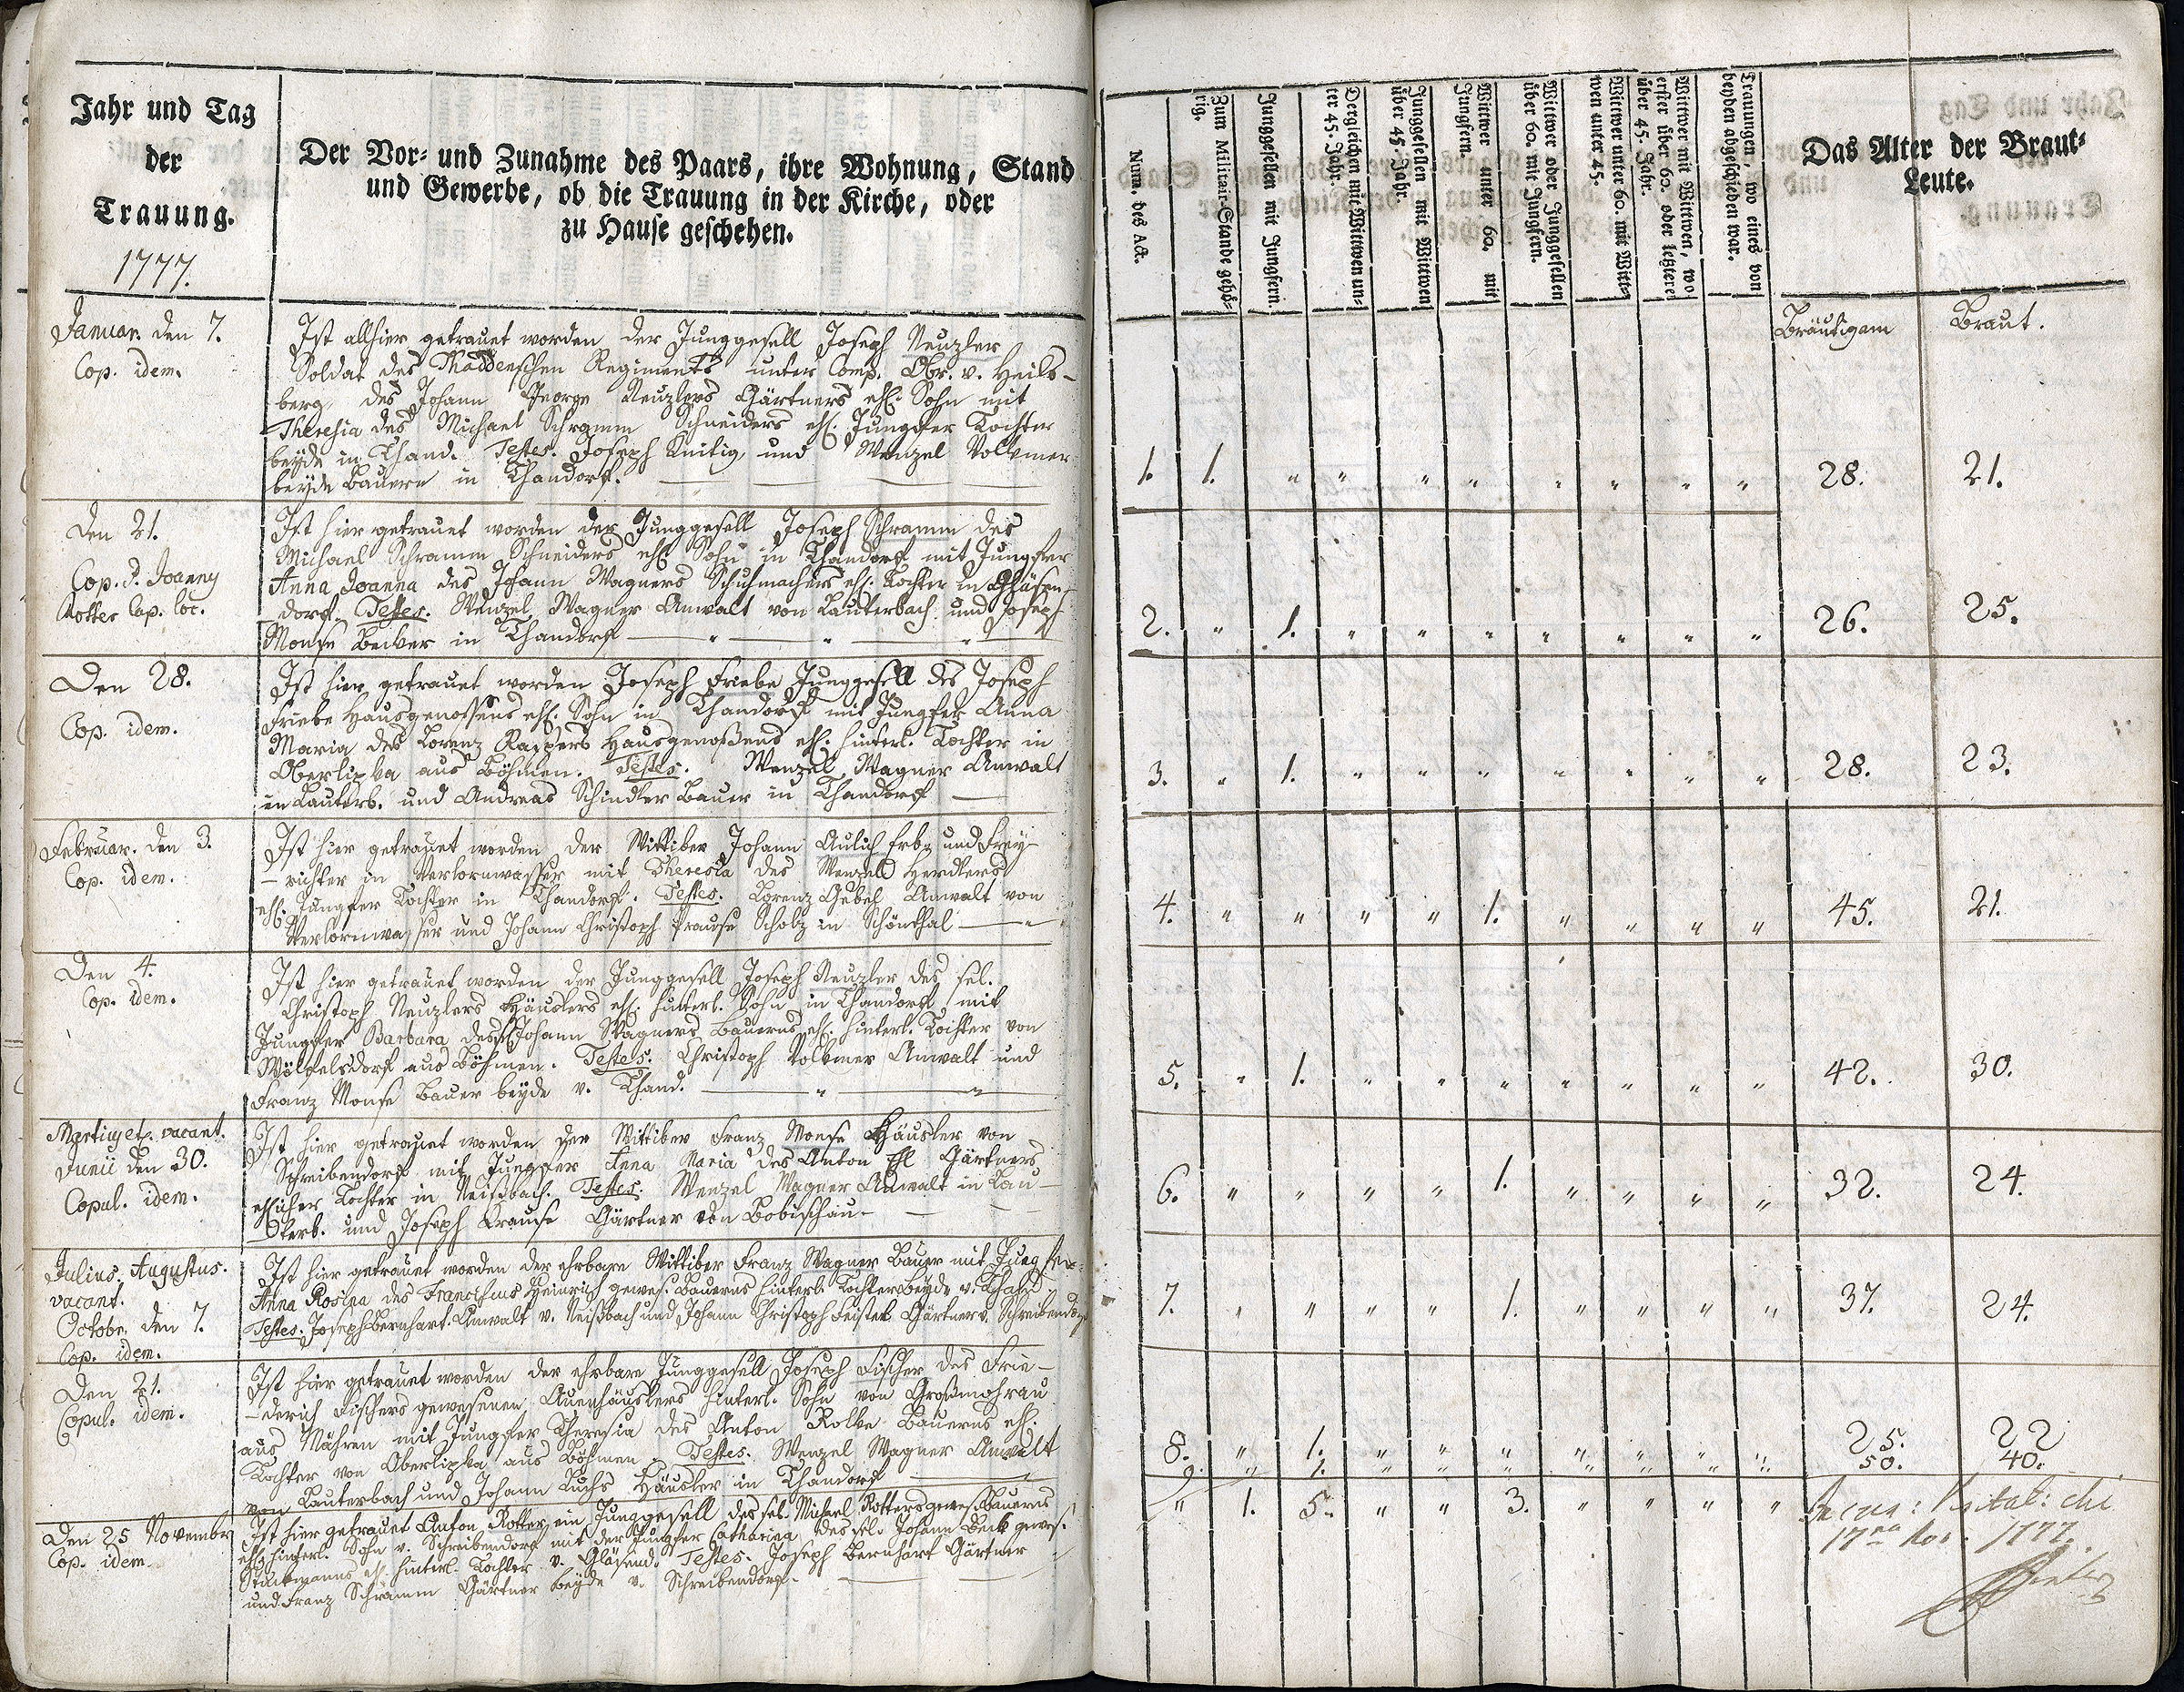 Jahr und Tag
der
Trauung.
1777.
Der Vor- und Zunahme des Paars, ihre Wohnung, Stand
und Gewerbe, ob die Trauung in der Kirche, oder
zu Hause geschehen.
Januar. den 7.
Cop. idem.
Ist allhier getrauet worden der Junggesell Joseph Neuzler
Soldat des Thaddenschen Regiments unter Comp. Obr. v. Heils-
berg, des Johann George Neuzlers Gärtners ehl. Sohn mit
Theresia des Michael Schramm Schneiders ehl. Jungfer Tochter
beyde in Thand. Testes. Joseph und Wenzel Volkmer
beyde Bauern in Thandorf.
Den 21.
Cop. P. Joanny
Rotter Cap. loc.
Ist hier getrauet worden der Junggesell Joseph Schramm des
Michael Schramm Schneiders ehl. Sohn in Thandorf mit Jungfer
Anna Joanna des Johann Wagners Schuhmachers ehl. Tochter in
dorf. Testes. Wenzel Wagner Anwalt von Lauterbach und Joseph
Monse Becker in Thandorf
Den 28.
Cop. idem.
Ist hier getrauet worden Joseph Friebe Junggesell des Joseph
Friebe Hausgenossens ehl. Sohn in Thandorf mit Jungfer Anna
Maria des Lorenz Raspers Hausgenoßens ehl. hinterl. Tochter in
Oberlipka aus Böhmen. Testes. Wenzel Wagner Anwalt
in Lauterb. und Andreas Schindler Bauer in Thandorf
Februar. den 3.
Cop. idem.
Ist hier getrauet worden der Wittiber Johann Aulich Erb- und Frey-
-richter in Verlornwasser mit Theresia des Wenzels Herdlers
ehl. Jungfer Tochter in Thandorf. Testes. Lorenz Gebel Anwalt von
Verlornwasser und Johann Christoph Krause Scholz in Schönthal
Den 4.
Cop. idem.
Ist hier getrauet worden der Junggesell Joseph Neuzler des sel.
Christoph Neuzlers Häuslers ehl. hinterl. Sohn in Thandorf mit
Jungfer Barbara des Johann Wagners Bauerns ehl. hinterl. Tochter von
Wölfelsdorf aus Böhmen. Testes. Christoph Volkmer Anwalt und
Franz Monse Bauer beyde v. Thand.
Martiusetc. vacant.
Junii den 30.
Copul. idem.
Ist hier getrauet worden der Wittiber Franz Monse Häusler von
Schreibendorf mit Jungfer Anna Maria des Anton Gärtners
ehlicher Tochter in Neißbach. Testes. Wenzel Wagner Anwalt in Lau-
terb. und Joseph Krause Gärtner von Bobischau
Julius. Augustus.
vacant.
Octobr. den 7.
Cop. idem.
Ist hier getrauet worden der ehrbare Wittiber Franz Wagner Bauer mit Jungfer
Anna Rosina des Franciscus Heinrich gewes. Bauerns hinterl. Tochter beyde v. Thand.
Testes. Joseph Bernhart Anwalt v. Neißbach und Johann Christoph Feister Gärtner v. Schreibend.
Den 21.
Copul. idem.
Ist hier getrauet worden der ehrbare Junggesell Joseph Fischer des Frie-
-derich Fischers gewesenen Auenhäuslers hinterl. Sohn von Großmohrau
aus Mähren mit Jungfer Theresia des Anton Rolke Bauerns ehl.
Tochter von Oberlipka aus Böhmen. Testes. Wenzel Wagner Anwalt
von Lauterbach und Johann Fuchs Häusler in Thandorf
Den 25 Novembr
Cop. idem.
Ist hier getrauet Anton Rotter ein Junggesell des sel. Michael Rotters gewes. Bauerns
ehl. hinterl. Sohn v. Schreibendorf mit der Jungfer Catharina des sel. Johann Beck gewes.
Stückmanns ehl. hinterl. Tochter v. Gläsend. Testes. Joseph Bernhart Gärtner
und Franz Schramm Gärtner beyde v. Schreibendorf.
Num. des Act.
Zum Militair-Stande gehö-
rig.
Junggesellen mit Jungfern.
Dergleichen mit Wittwen un-
ter 45. Jahr.
Junggesellen mit Wittwen
über 45 Jahr.
Wittwer unter 60. mit
Jungfern.
Wittwer oder Junggesellen
über 60. mit Jungfern.
Wittwer unter 60. mit Witt-
wen unter 45.
Wittwer mit Wittwen, wo
erster über 60. oder letztere
über 45. Jahr.
Trauungen, wo eines von
beyden abgeschieden war.
Das Alter der Braut-
Leute.
Bräutigam Braut.
1. 1. " " " " " " " " 28. 21.
2. " 1. " " " " " " " 26. 25.
3. " 1. " " " " " " " 28. 23.
4. " " " " 1. " " " " 45. 21.
5. " 1. " " " " " " " 42. 30.
6. " " " " 1. " " " " 32. 24.
7. " " " " 1. " " " " 37. 24.
8. " 1. " " " " " " " 25. 22
9. " 1. " " " " " " " 50. 40.
" 1. 5. " " 3. " " " "
Visitat: die
17 Nov. 1777.